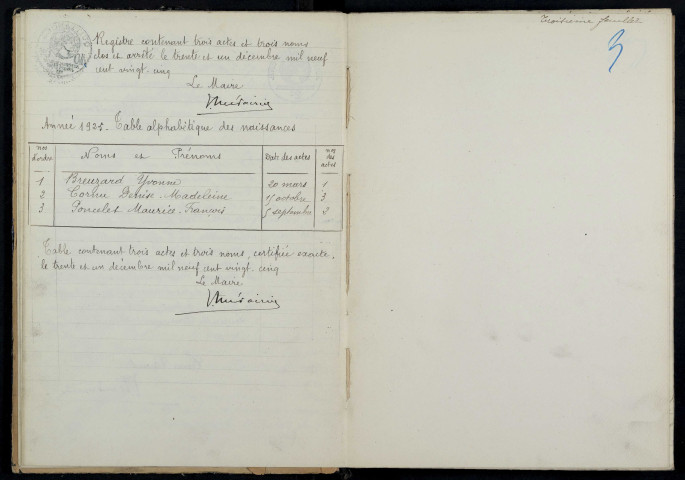 Registre contenant trois actes et trois noms
clos et arrêté le trente et un décembre mil neuf
cent vingt-cinq
Le Maire
Année 1925- Table alphabétique des naissances
nos d'ordre Noms et Prénoms Date des actes nos des actes
1 Breuzard Yvonne 20 mars 1
2 Cornu Denise-Madeleine 17 octobre 3
3 Poncelet Maurice-François 5 septembre 2
Table contenant trois actes et trois noms, certifiée exacte,
le trente et un décembre mil neuf cent vingt-cinq
Le Maire
Troisième feuillet
3